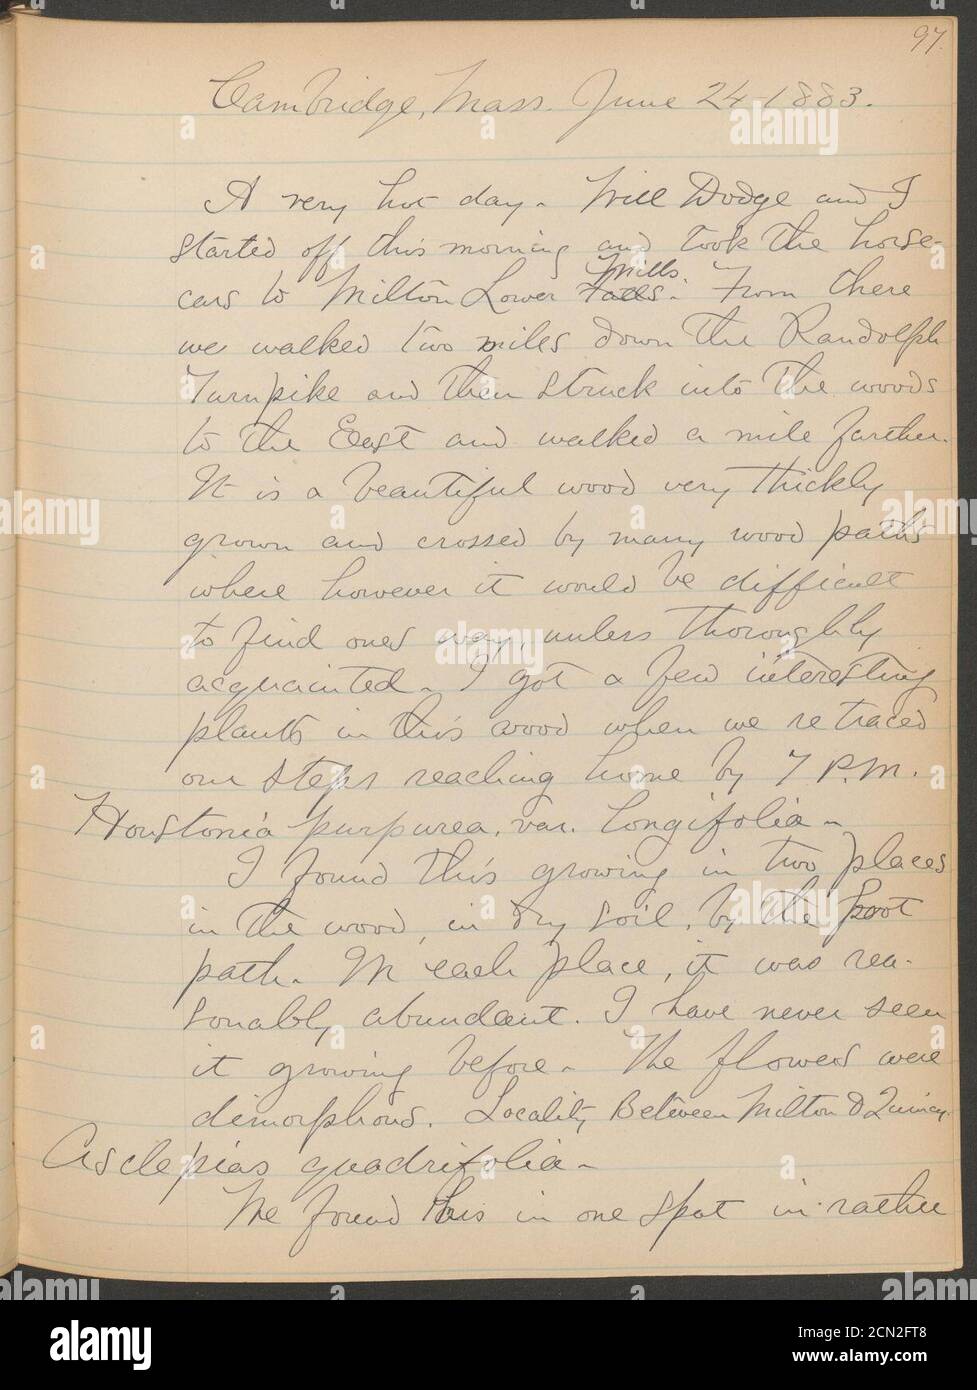 97.
Cambridge, Mass. June 24-1883.
A very hot day. Will Dodge and I
started off this morning and took the horse-
cars to Milton Lower Falls. Mills. From there
we walked two miles down the Randolph
Turnpike and then struck into the woods
to the East and walked a mile farther.
It is a beautiful wood very thickly
grown and crossed by many wood paths
where however it would be difficult
to find ones way, unless thoroughly
acquainted. I got a few interesting
plants in this wood when we retraced
our steps reaching home by 7 P.M.
Houstonia purpurea, var. longifolia -
I found this growing in two places
in the wood, in dry soil, by the foot
path. In each place, it was rea-
sonably abundant. I have never seen
it growing before. The flowers were
dimorphous. Locality, Between Milton & Quincy.
Asclepias quadrifolia -
We found this in one spot in rather
alamy
alamy
Image ID: 2CN2FT8
www.alamy.com